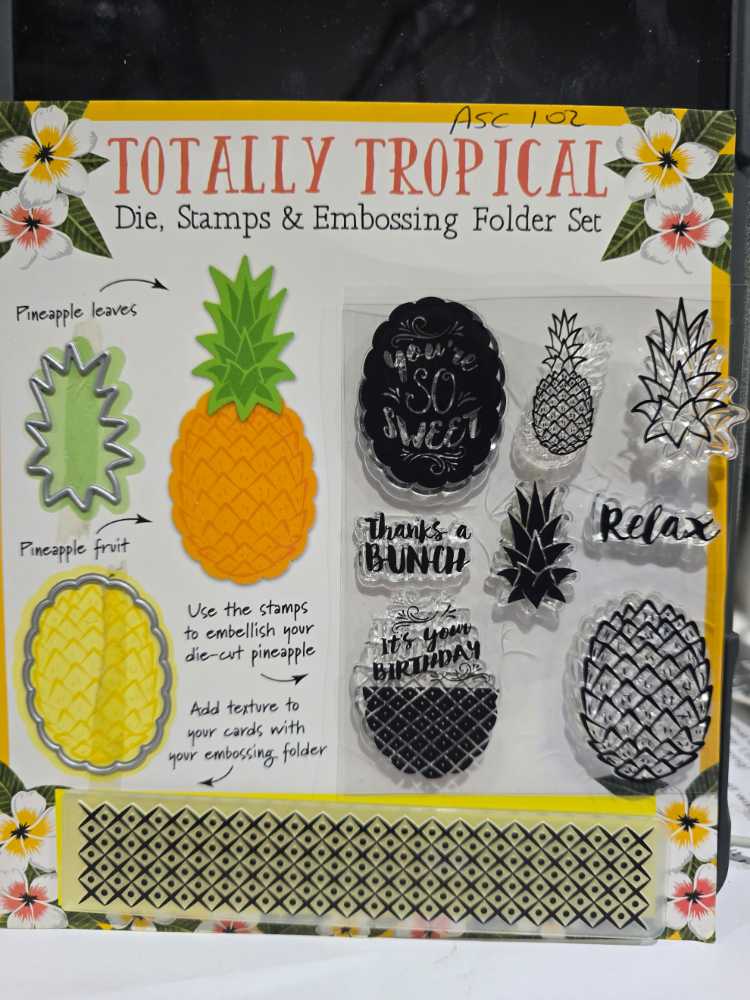 ASC 102
TOTALLY TROPICAL
Die, Stamps & Embossing Folder Set
Pineapple leaves
you're
SO
SWEET
Thanks a
BUNCH
Relax
Pineapple fruit
Use the stamps
to embellish your
die-cut pineapple
It's your
BIRTHDAY
Add texture to
your cards with
your embossing folder